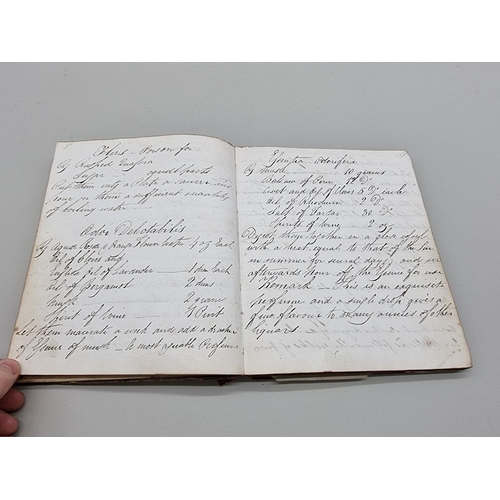 Flies - Poison for
℞ Rasped Quassia
Sugar - equal parts
Put them into a plate or saucer and
pour on them a sufficient quantity
of boiling water
Odor Delectabilis
℞ equal Rose & Orange Flower water 4 oz Each
Oil of Cloves
English Oil of Lavender 1 dm Each
Oil of Bergamot 2 dms
Musk 2 grains
Spirit of Wine 1 Pint
Let them macerate a week and add
of Essence of musk - A most agreeable Perfume
Essentia Odorifera
℞ Musk 10 grains
Balsam of Peru Do
Civet and Oil of Cloves 5 Do each
Oil of Rhodium 2 Do
Salt of Tartar 30 Do
Spirits of Wine 2 oz
Digest them together in a close vessel
with a heat equal to that of the sun
in summer for several days and
afterwards pour off the Essence for use
Remark - This is an exquisite
perfume and a single drop gives a
fine flavour to many ounces of other
liquors